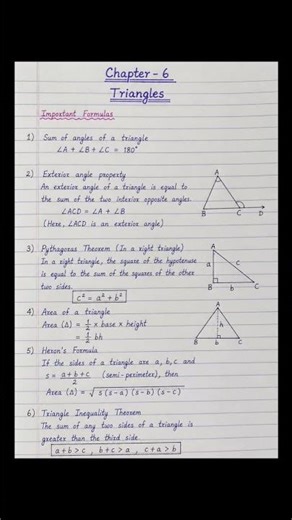 Chapter - 6
Triangles
Important Formulas
1) Sum of angles of a triangle
∠A + ∠B + ∠C = 180°
2) Exterior angle property
An exterior angle of a triangle is equal to
the sum of the two interior opposite angles.
∠ACD = ∠A + ∠B
(Here, ∠ACD is an exterior angle)
A
B C D
3) Pythagoras Theorem (In a right triangle)
In a right triangle, the square of the hypotenuse
is equal to the sum of the squares of the other
two sides.
c² = a² + b²
A
a c
B b C
4) Area of a triangle
Area (Δ) = 1/2 x base x height
= 1/2 bh
A
h
B b C
5) Heron's Formula
If the sides of a triangle are a, b, c and
s = a+b+c/2 (semi-perimeter), then
Area (Δ) = √s(s-a)(s-b)(s-c)
6) Triangle Inequality Theorem
The sum of any two sides of a triangle is
greater than the third side.
a+b>c , b+c>a , c+a>b